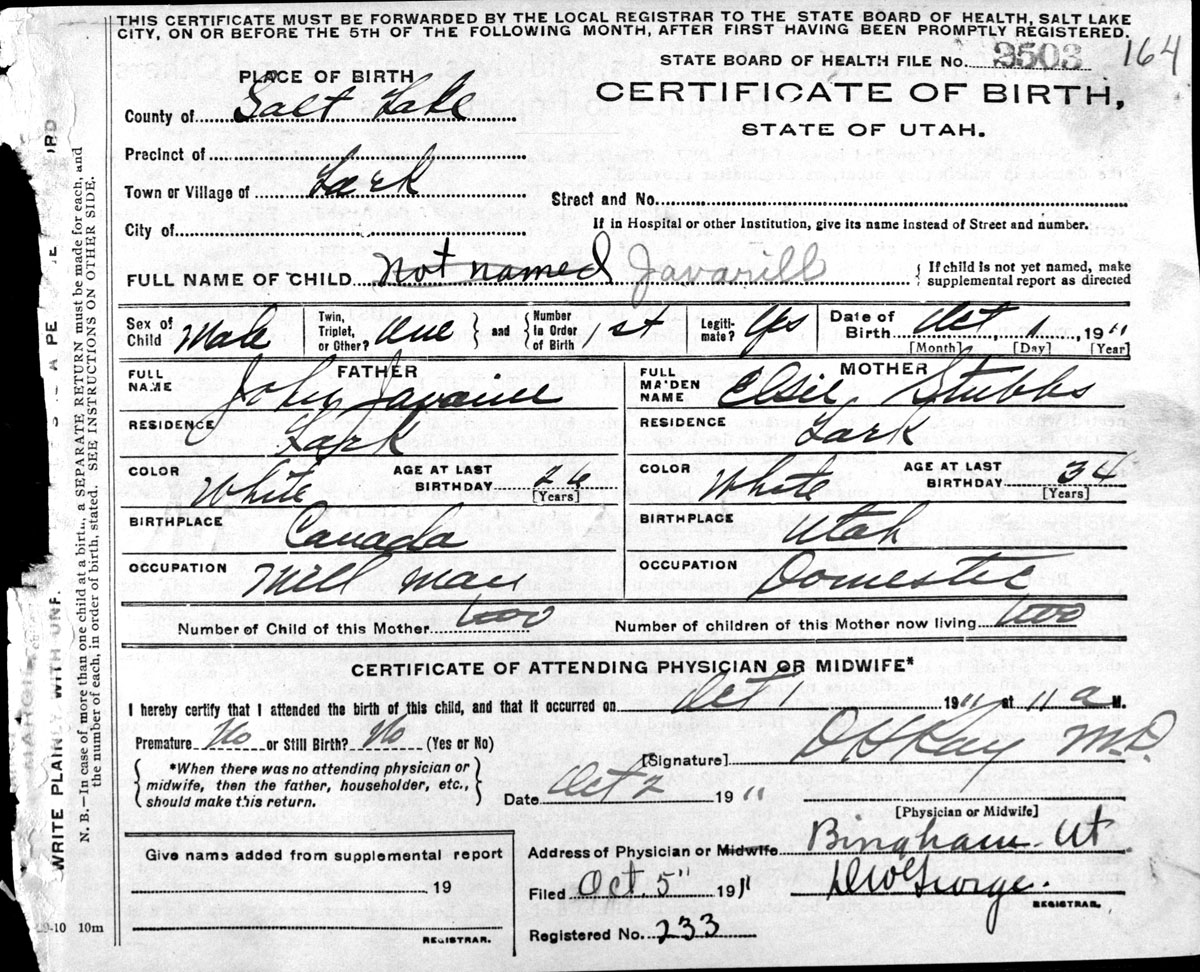 THIS CERTIFICATE MUST BE FORWARDED BY THE LOCAL REGISTRAR TO THE STATE BOARD OF HEALTH, SALT LAKE
CITY, ON OR BEFORE THE 5TH OF THE FOLLOWING MONTH, AFTER FIRST HAVING BEEN PROMPTLY REGISTERED.
STATE BOARD OF HEALTH FILE No. 3503 164
PLACE OF BIRTH
CERTIFICATE OF BIRTH,
STATE OF UTAH.
County of Salt Lake
Precinct of
Town or Village of Lark
Street and No.
City of
If in Hospital or other Institution, give its name instead of Street and number.
FULL NAME OF CHILD Not named Javarill { If child is not yet named, make supplemental report as directed
Sex of Child Male
Twin, Triplet, or Other? One } and { Number in Order of Birth 1st
Legitimate? Yes
Date of Birth Oct 1, 1911
[Month] [Day] [Year]
FATHER
FULL NAME John Javarill
RESIDENCE Lark
COLOR White AGE AT LAST BIRTHDAY 26 [Years]
BIRTHPLACE Canada
OCCUPATION Mill Man
MOTHER
FULL MAIDEN NAME Elsie Stubbs
RESIDENCE Lark
COLOR White AGE AT LAST BIRTHDAY 34 [Years]
BIRTHPLACE Utah
OCCUPATION Domestic
Number of Child of this Mother two Number of children of this Mother now living two
CERTIFICATE OF ATTENDING PHYSICIAN OR MIDWIFE*
I hereby certify that I attended the birth of this child, and that it occurred on Oct 1 1911 at 11 a M.
Premature No or Still Birth? No (Yes or No)
{ *When there was no attending physician or midwife, then the father, householder, etc., should make this return. }
[Signature] Kay M.D
Date Oct 2 1911
[Physician or Midwife]
Address of Physician or Midwife Bingham Ut
Filed Oct 5" 1911 George.
REGISTRAR.
Registered No. 233
Give name added from supplemental report
19
REGISTRAR.
-10 10m
WRITE PLAINLY WITH UNF
N. B.—In case of more than one child at a birth, a SEPARATE RETURN must be made for each, and
the number of each, in order of birth, stated. SEE INSTRUCTIONS ON OTHER SIDE.